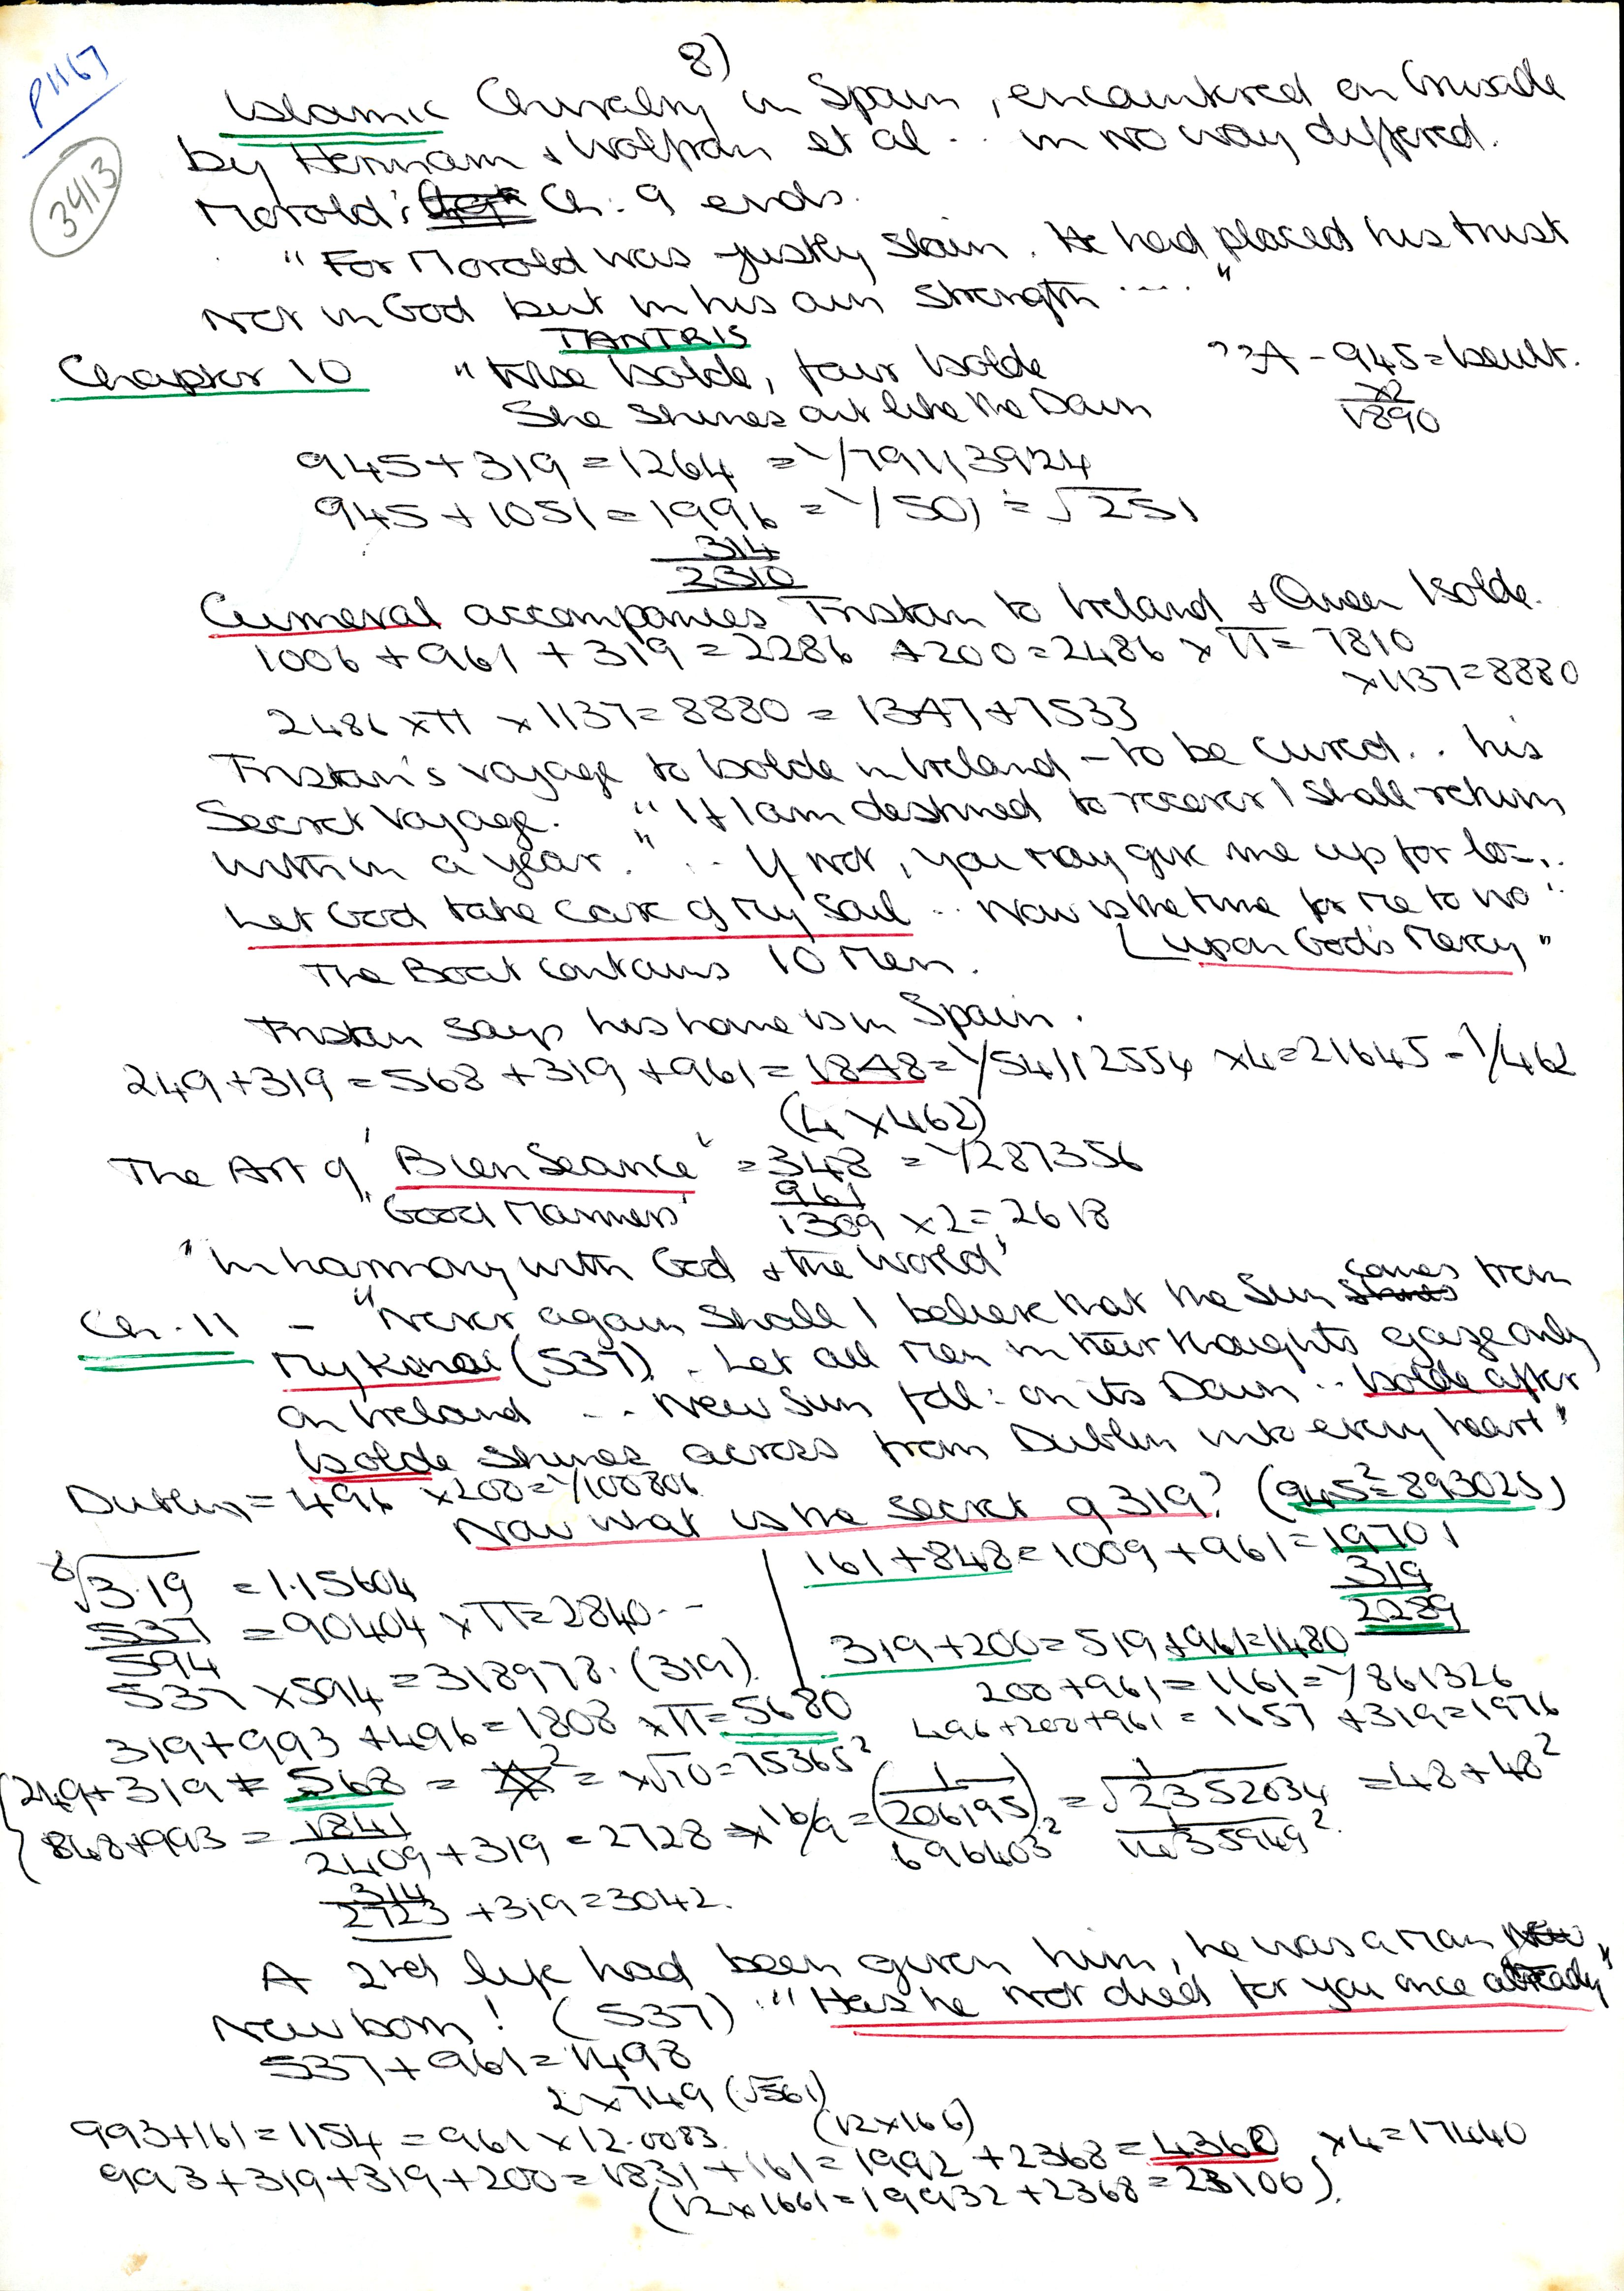 8)
P1167
3413
Islamic Chivalry in Spain, encountered on Crusade
by Hermann & Wolfram et al .. in no way differed.
Morold: Ch: 9 ends.
"For Morold was justly slain. He had placed his trust
not in God but in his own strength ...."
TANTRIS
Chapter 10 "Wise Isolde, fair Isolde
??A - 945 = 
She shines out like the Dawn
x2
1890
945 + 319 = 1264 = 1/79113924
945 + 1051 = 1996 = 1/501 = √251
314
2310
Curneval accompanies Tristan to Ireland & Queen Isolde.
1006 + 961 + 319 = 2286 + 200 = 2486 x π = 7810
x 1137 = 8880
2486 x π x 1137 = 8880 = 1347 + 7533
Tristan's voyage to Isolde in Ireland - to be cured .. his
Secret Voyage. "If I am destined to recover I shall return
within a year." .. If not, you may give me up for 
Let God take care of my Soul .. Now is the time for me to 
upon God's Mercy"
The Boat contains 10 Men.
Tristan says his home is in Spain.
249 + 319 = 568 + 319 + 961 = 1848 = 1/54112554 x 4 = 21645 = 1/462
(4 x 462)
The Art of 'Bien Seance' = 348 = 1/287356
"Good Manners" 961
1309 x 2 = 2618
"In harmony with God & the World"
Ch. 11 - "Never again shall I believe that the Sun shines comes from
Mykenai (537). Let all Men in their thoughts gaze only
on Ireland ... New Sun foll: on its Dawn .. Isolde after
Isolde shines across from Dublin into every heart"
Dublin = 496 x 200 = 1/100806
Now what is the secret of 319? (945² = 893025)
8√3.19 = 1.15604
161 + 848 = 1009 + 961 = 1970
319
2289
537 = 90404 x π = 2840..
594
319 + 200 = 519 + 961 = 1480
537 x 594 = 318978. (319)
200 + 961 = 1161 = 1/861326
319 + 993 + 496 = 1808 x π = 5680
496 + 200 + 961 = 1657 + 319 = 1976
249 + 319 = 568 = = x √10 = 75365² = (1/206195) = √2352034 = 48 + 48²
848 + 993 = 1841
2409 + 319 = 2728 x 16/9 696403² 1435949²
314
2723 + 319 = 3042.
A 2nd life had been given him, he was a man
New born! (537) .. "Has he not died for you once already"
537 + 961 = 1498
2 x 749 (√561)
993 + 161 = 1154 = 961 x 12.0083. (12 x 166)
993 + 319 + 319 + 200 = 1831 + 161 = 1992 + 2368 = 4360 x 4 = 17440
(12 x 1661 = 19932 + 2368 = 23100).